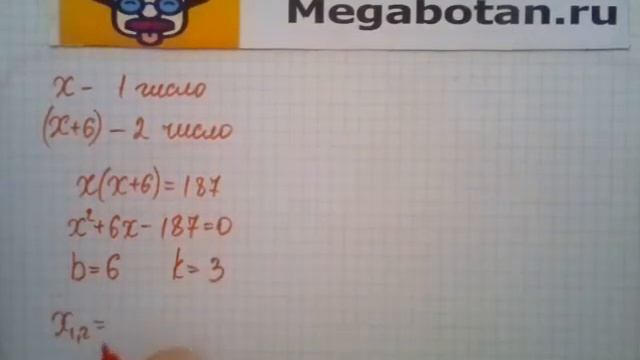 Megabotan.ru
x - 1 число
(x+6) - 2 число
x(x+6)=187
x²+6x-187=0
b=6 k=3
x₁,₂=